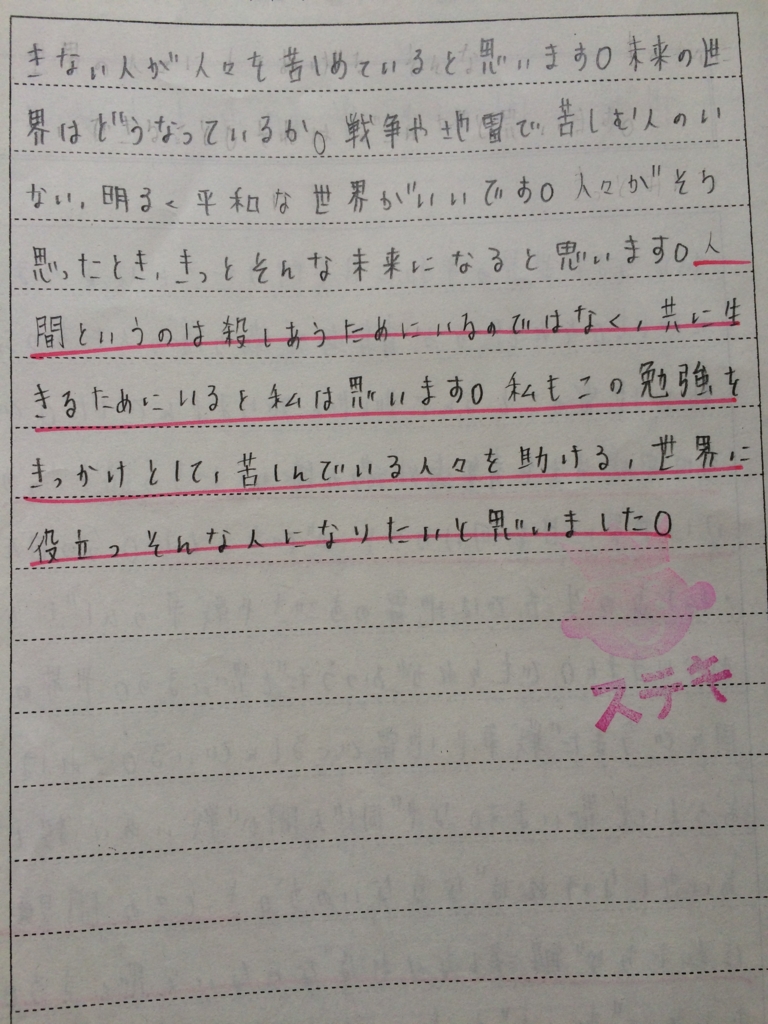 きない人が人々を苦しめていると思います。未来の世
界はどうなっているか。戦争や地雷で苦しむ人のい
ない、明るく平和な世界がいいです。人々がそう
思ったとき、きっとそんな未来になると思います。人
間というのは殺しあうためにいるのではなく、共に生
きるためにいると私は思います。私もこの勉強を
きっかけとして、苦しんでいる人々を助ける、世界に
役立つそんな人になりたいと思いました。
ステキ